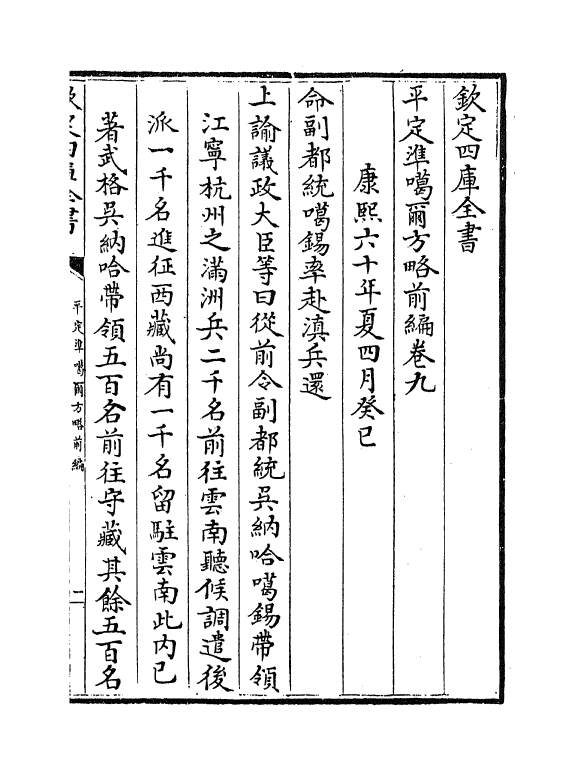 欽定四庫全書
平定準噶爾方略前編卷九
康熙六十年夏四月癸巳
命副都統噶錫率赴滇兵還
上諭議政大臣等曰從前令副都統吳納哈噶錫帶領
江寧杭州之滿洲兵二千名前往雲南聽候調遣後
派一千名進征西藏尚有一千名留駐雲南此內已
著武格吳納哈帶領五百名前往守藏其餘五百名
欽定四庫全書
平定準噶爾方略前編
二